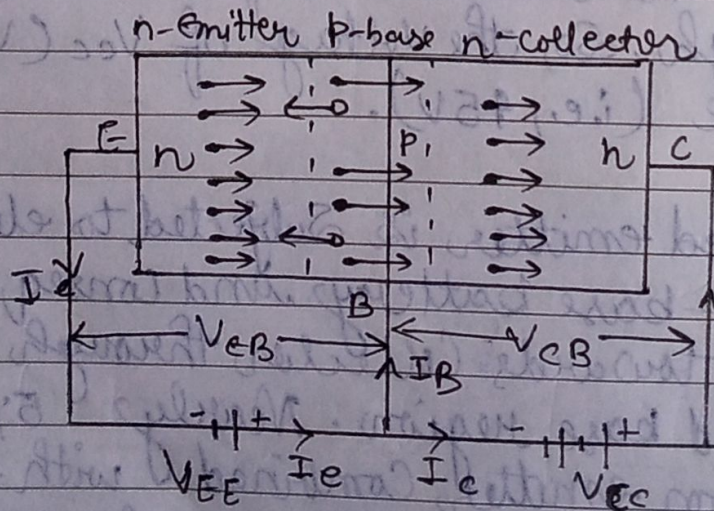 n-emitter p-base n-collector
E n P n C
Ie B
VEB VCB
IB
- + - +
VEE Ie Ic VCC